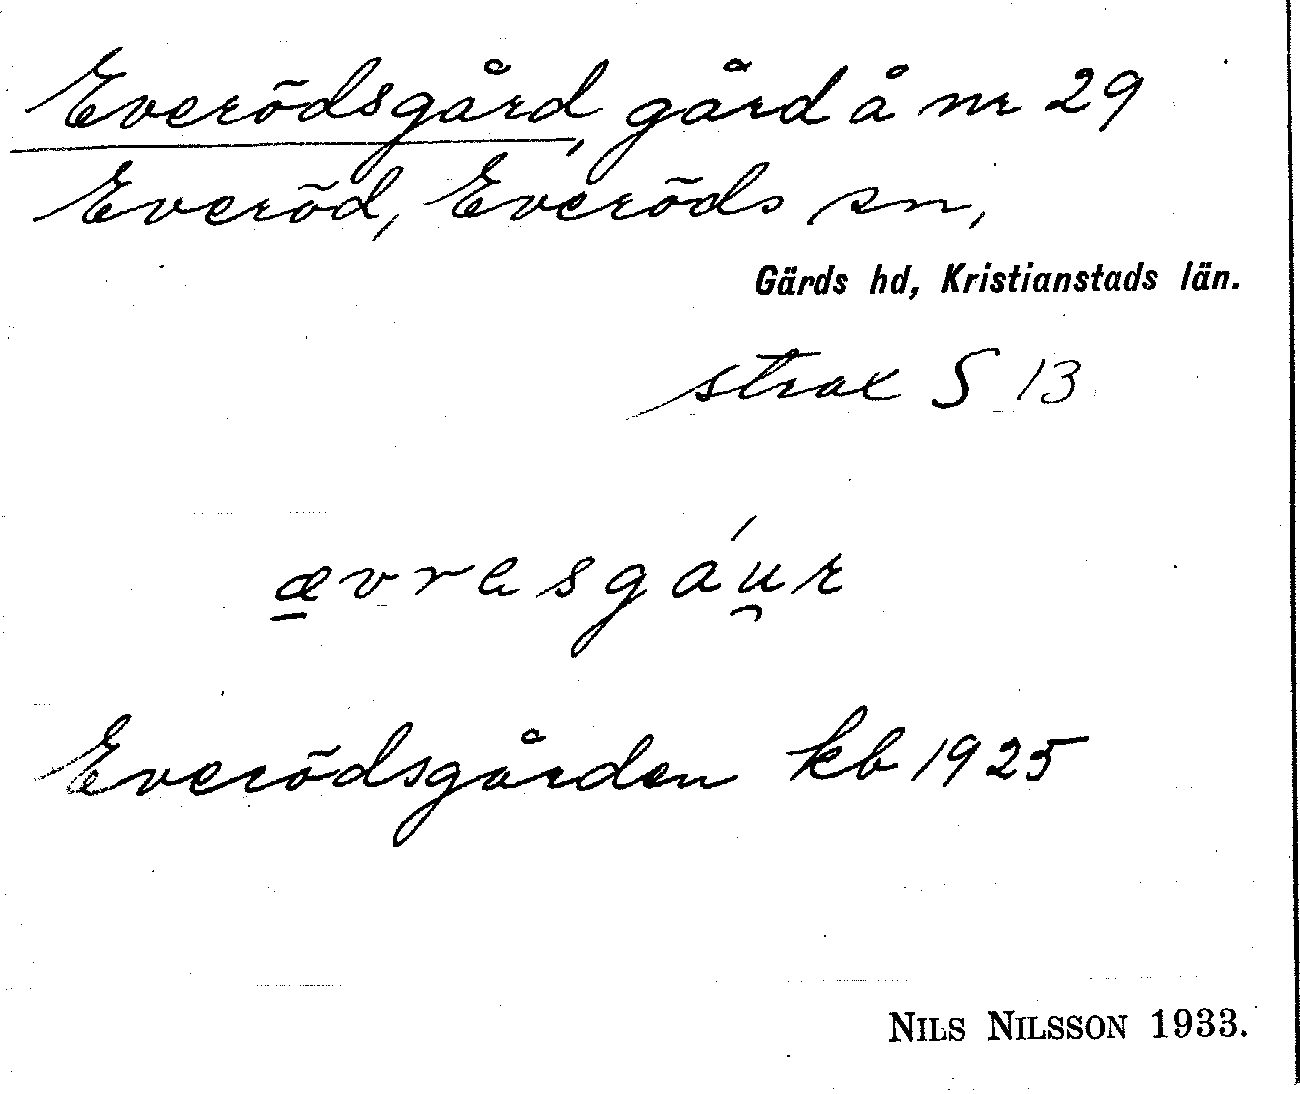 Everödsgård, gård å nr 29
Everöd, Everöds sn,
Gärds hd, Kristianstads län.
strax S 13
æ̱vrasgáu̯r
Everödsgården kb 1925
NILS NILSSON 1933.